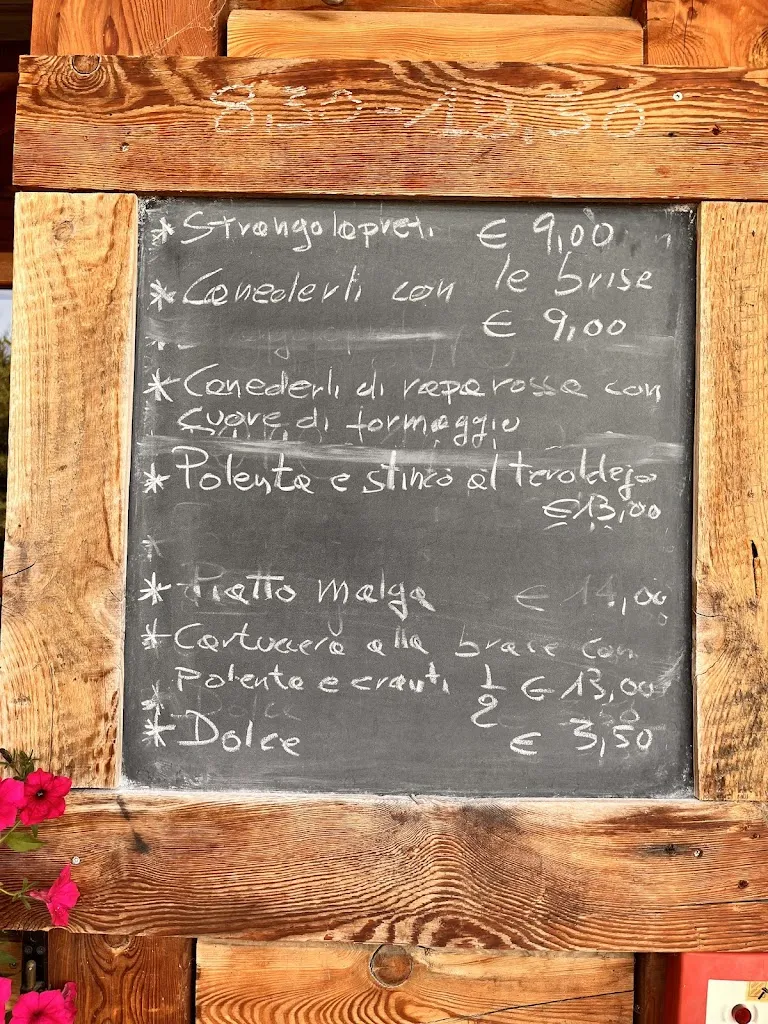 8.30-18.30
* Strangolapreti € 9,00
* Canederli con le brise
€ 9,00
* Canederli di rapa rossa con
cuore di formaggio
* Polenta e stinco al teroldego
€ 13,00
* Piatto malga € 14,00
* Cartuccera alla brace con
polenta e crauti 1/2 € 13,00
* Dolce € 3,50